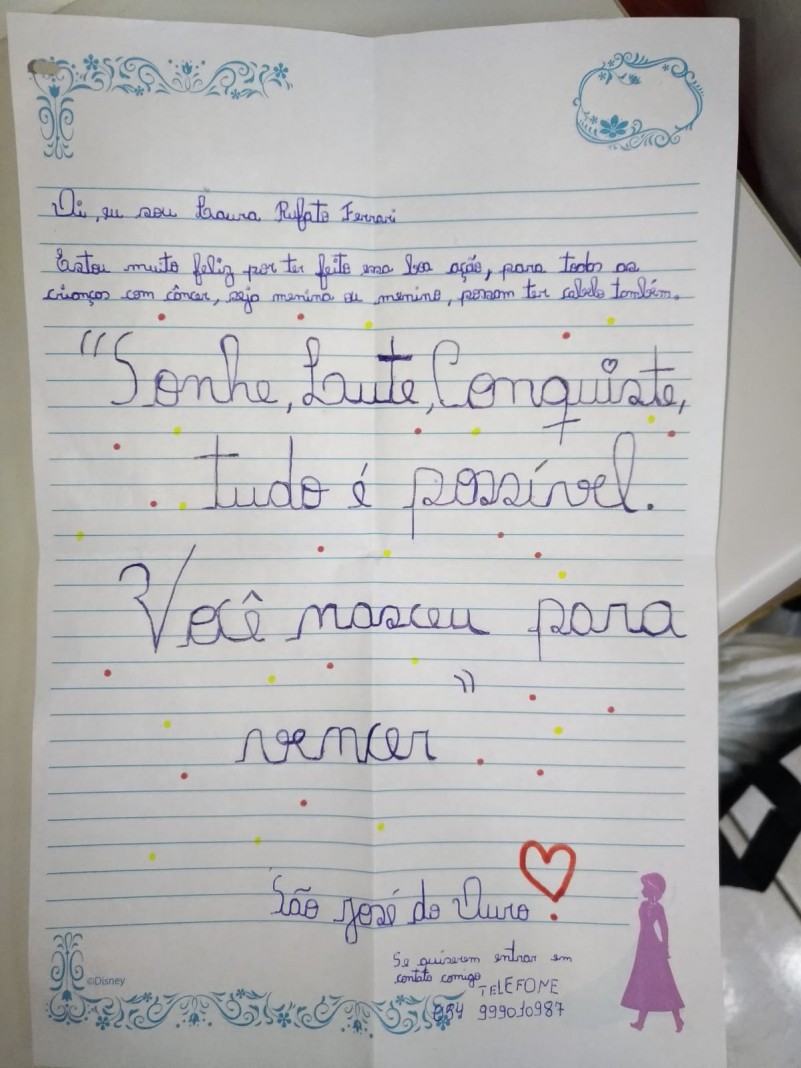 Oi, eu sou Laura Rufato Ferrari
Estou muito feliz por ter feito essa boa ação, para todos as
crianços com câncer, seja menina ou menino, possam ter cabelo também.
"Sonhe, Lute, Conquiste,
tudo é possível.
Você nasceu para
vencer"
São José do Ouro
Se quiserem entrar em
contato comigo
TELEFONE
054 999010987
©Disney